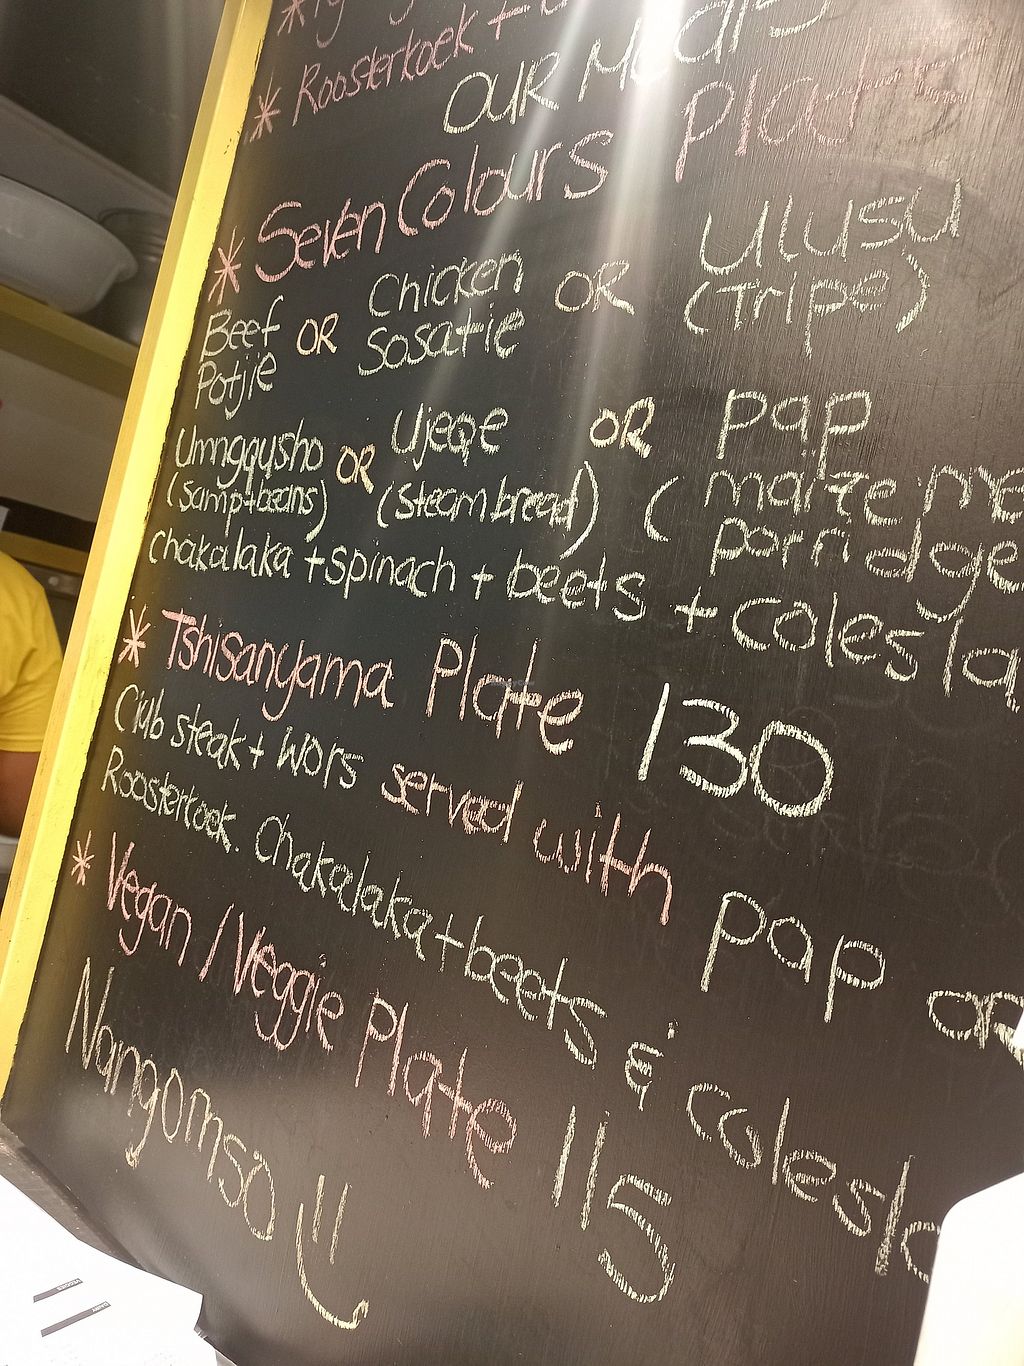 * Roosterkoek +
OUR Meals
* Seven Colours Plate
Beef Potjie OR Chicken Sosatie OR Ulusu (Tripe)
Umngqusho (samp+beans) OR Ujeqe (steam bread) OR pap (maize me porridge
chakalaka + spinach + beets + colesla
* Tshisanyama Plate 130
Club steak + wors served with pap or
Roosterkoek. Chakalaka + beets & colesla
* Vegan / Veggie Plate 115
Nangomso